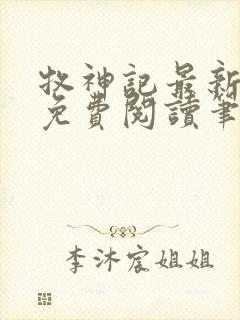 牧神記最新
免費閱讀筆
李沐宸姐姐